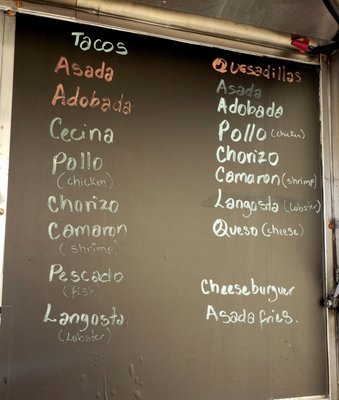 Tacos
Asada
Adobada
Cecina
Pollo
(chicken)
Chorizo
Camaron
(shrimp)
Pescado
(fish)
Langosta
(Lobster)
Quesadillas
Asada
Adobada
Pollo (chicken)
Chorizo
Camaron (shrimp)
Langosta (Lobster)
Queso (cheese)
Cheeseburguer
Asada fries.